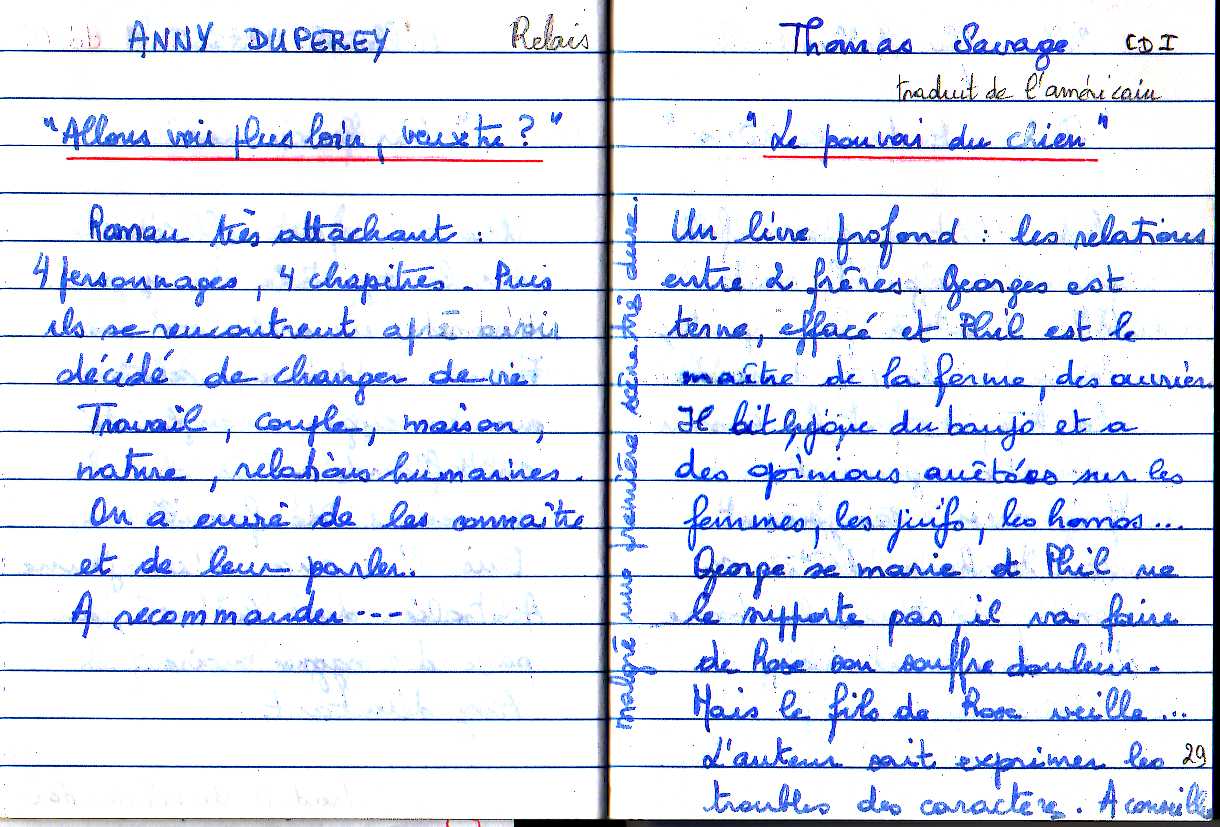 ANNY DUPEREY Relais
"Allons voir plus loin, veux tu ?"
Roman très attachant :
4 personnages, 4 chapitres. Puis
ils se rencontrent après avoir
décidé de changer de vie
Travail, couple, maison,
nature, relations humaines.
On a envie de les connaître
et de leur parler.
A recommander ---
Thomas Savage CDI
traduit de l'américain
"Le pouvoir du chien"
malgré une première scène très dure.
Un livre profond : les relations
entre 2 frères. Georges est
terne, effacé et Phil est le
maître de la ferme, des ouvriers.
Il lit, joue du banjo et a
des opinions arrêtées sur les
femmes, les juifs, les homos...
George se marie et Phil ne
le supporte pas, il va faire
de Rose son souffre douleur.
Mais le fils de Rose veille...
L'auteur sait exprimer les 29
troubles des caractères. A conseiller